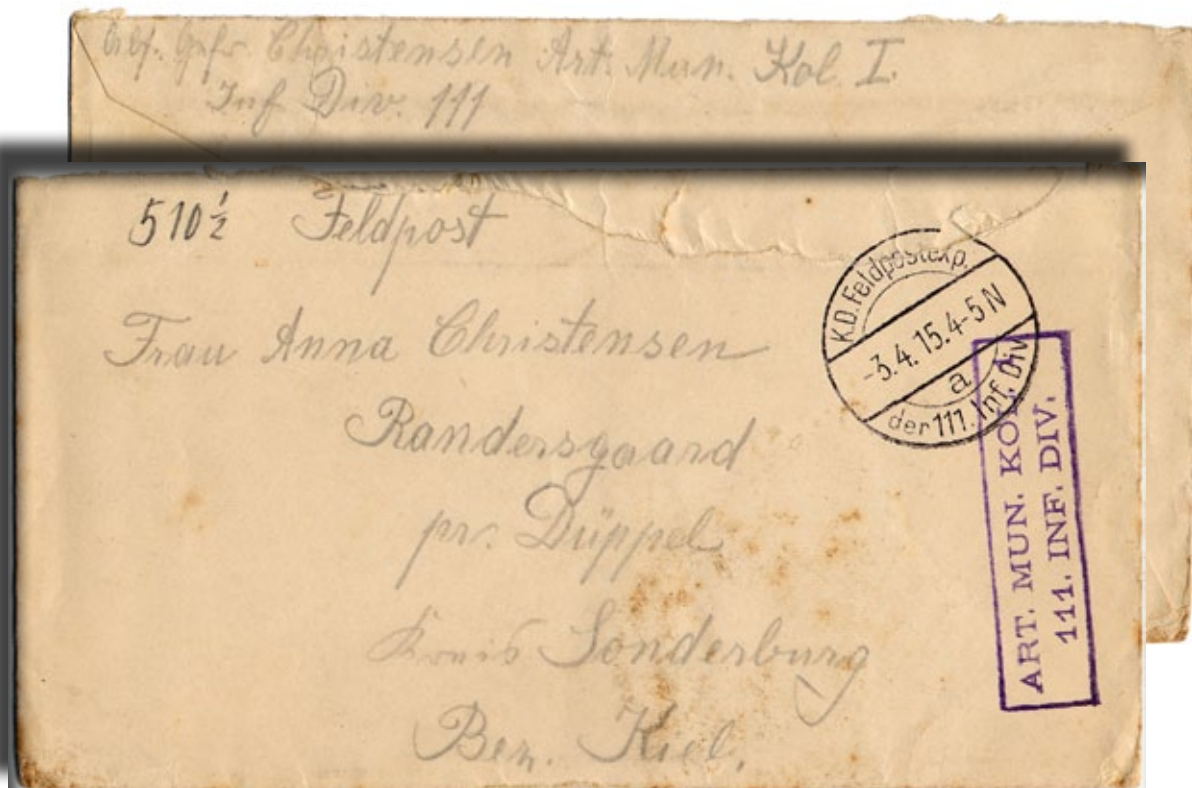 Abs. Gefr. Christensen Art. Mun. Kol. I.
Inf. Div. 111
510½ Feldpost
Frau Anna Christensen
Randersgaard
pr. Düppel
Kreis Sonderburg
Bez. Kiel.
K.D. Feldpostexp.
-3.4.15.4-5N
a
der 111. Inf. Div.
ART. MUN. KOL.
111. INF. DIV.